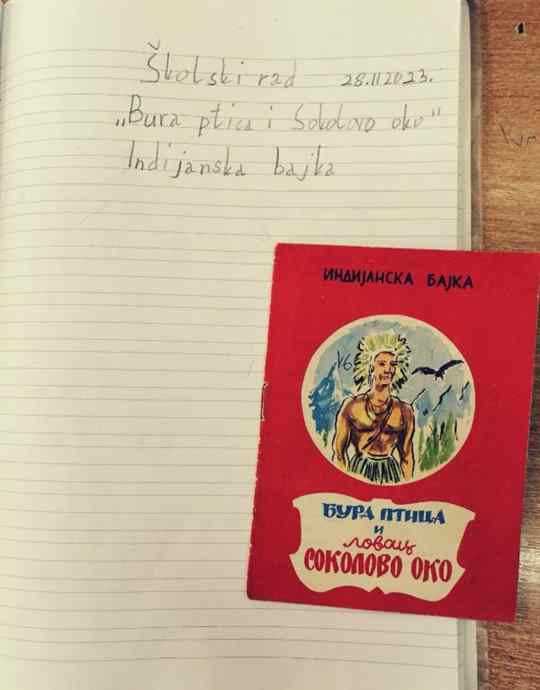 Školski rad 28.11.2023.
„Bura ptica i Sokolovo oko“
Indijanska bajka
ИНДИЈАНСКА БАЈКА
БУРА ПТИЦА
И
ловац
СОКОЛОВО ОКО